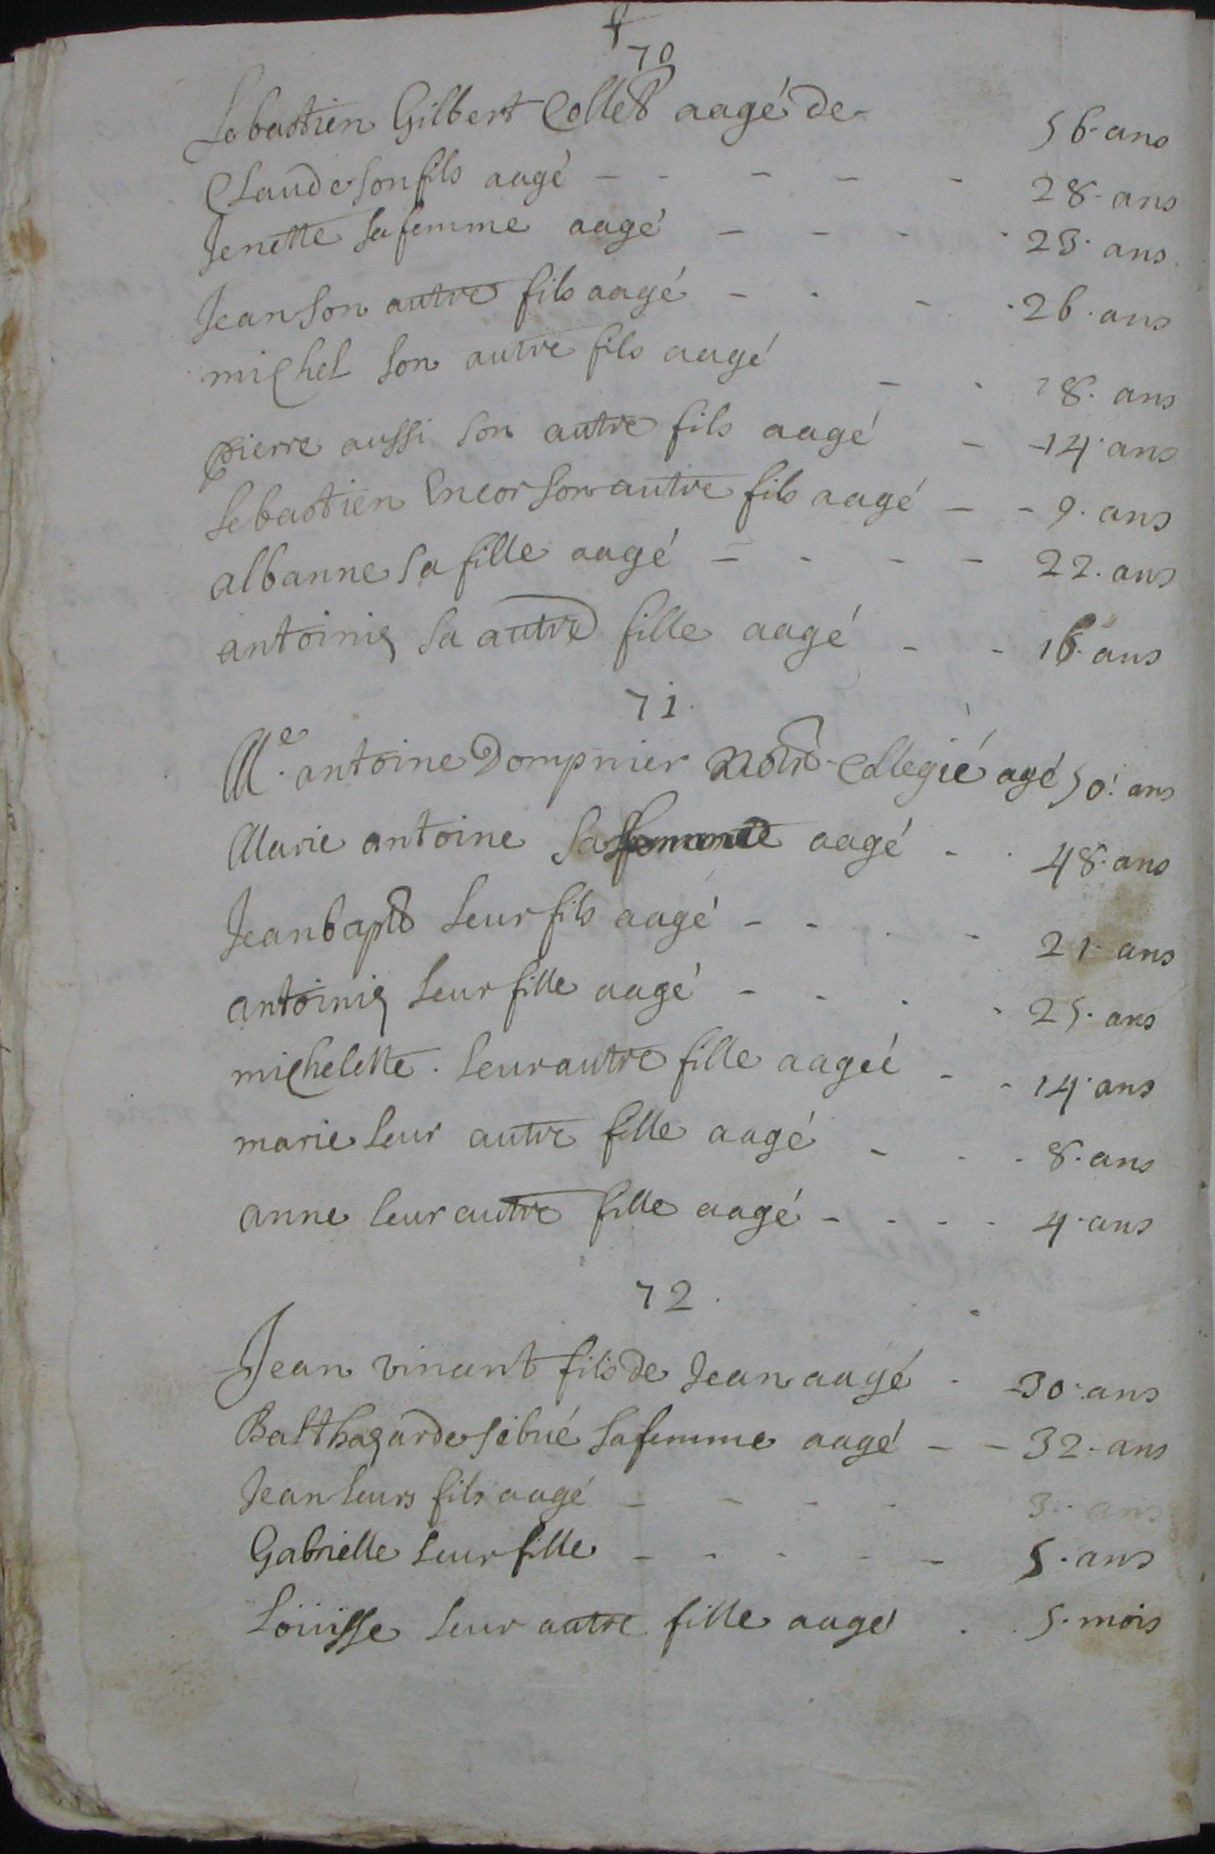 70
Sebastien Gilbert Collet aagé de 56 ans
Claude son fils aagé - - - - - 28. ans
Jenette sa femme aagé - - - - 23. ans
Jean son autre fils aagé - - - - 26. ans
michel son autre fils aagé - - 18. ans
pierre aussi son autre fils aagé - - 14. ans
sebastien Encor son autre fils aagé - - 9. ans
albanne sa fille aagé - - - - 22. ans
antoinig sa autre fille aagé - - 16. ans
71.
Me. antoine Dompnier Notre Collegié agé 50. ans
Marie antoine sa femme aagé - - 48. ans
Jean bapt leur fils aagé - - - - 21. ans
antoinig leur fille aagé - - - - 25. ans
michelette. leur autre fille aageé - - 14. ans
marie leur autre fille aagé - - - 8. ans
anne leur autre fille aagé - - - - 4. ans
72.
Jean vinant fils de Jean aagé - - 30. ans
Balthazarde sibué sa femme aagé - - 32. ans
Jean leurs fils aagé - - - - 3. ans
Gabrielle leur fille - - - - - 5. ans
Loüisse leur autre fille aagé . . 5. mois